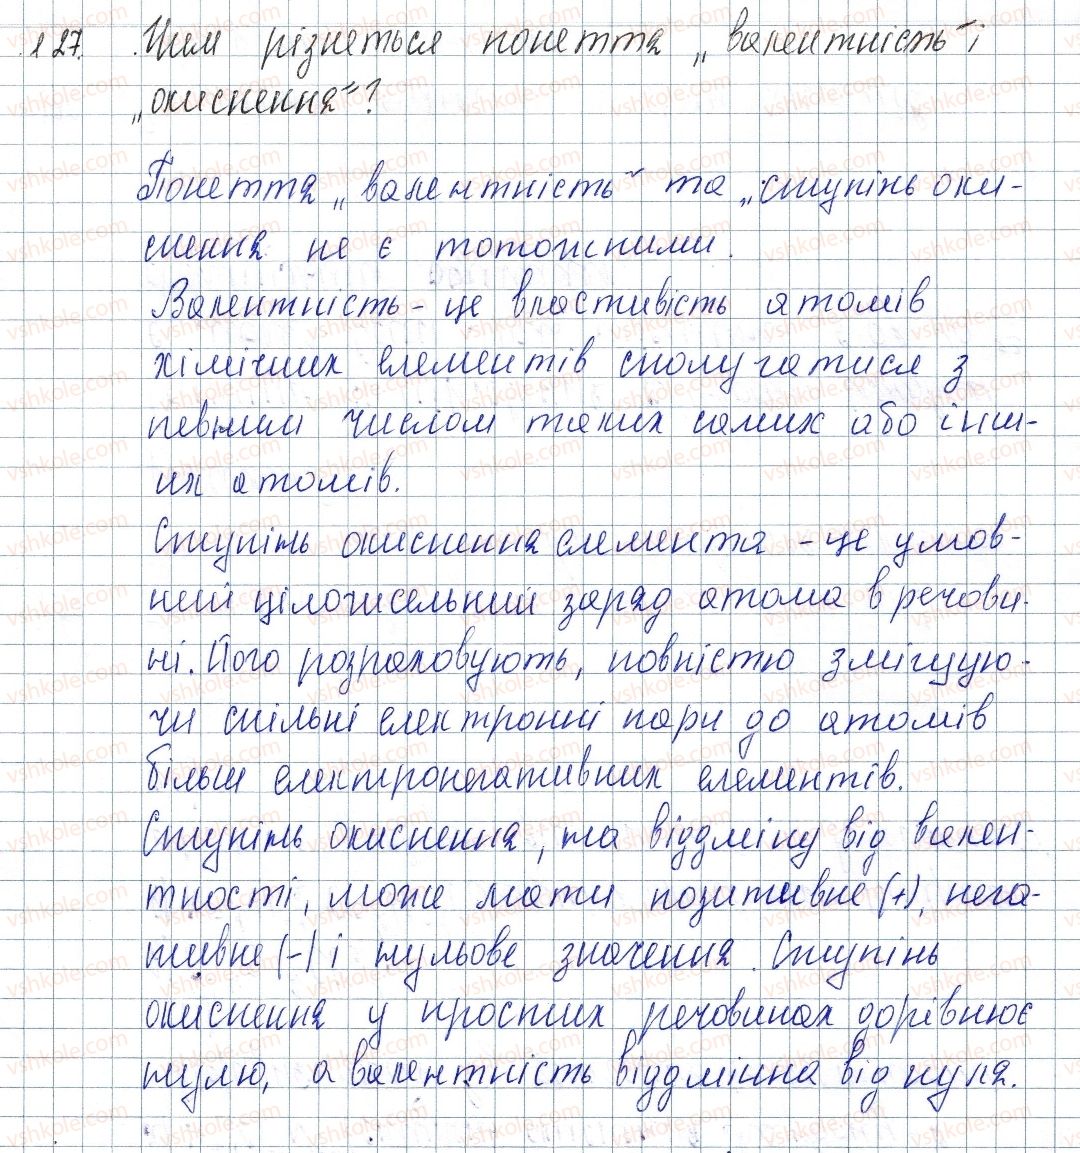 127. Чим різняться поняття „валентність" і
„окиснення"?
Поняття „валентність" та „ступінь оки-
снення не є тотожними.
Валентність - це властивість атомів
хімічних елементів сполучатися з
певним числом таких самих або інш-
их атомів.
Ступінь окиснення елемента - це умов-
ний цілочисельний заряд атома в речови-
ні. Його розраховують, повністю зміщую-
чи спільні електронні пари до атомів
більш електронегативних елементів.
Ступінь окиснення, на відміну від вален-
тності, може мати позитивне (+), нега-
тивне (-) і нульове значення. Ступінь
окиснення у простих речовинах дорівнює
нулю, а валентність відмінна від нуля.